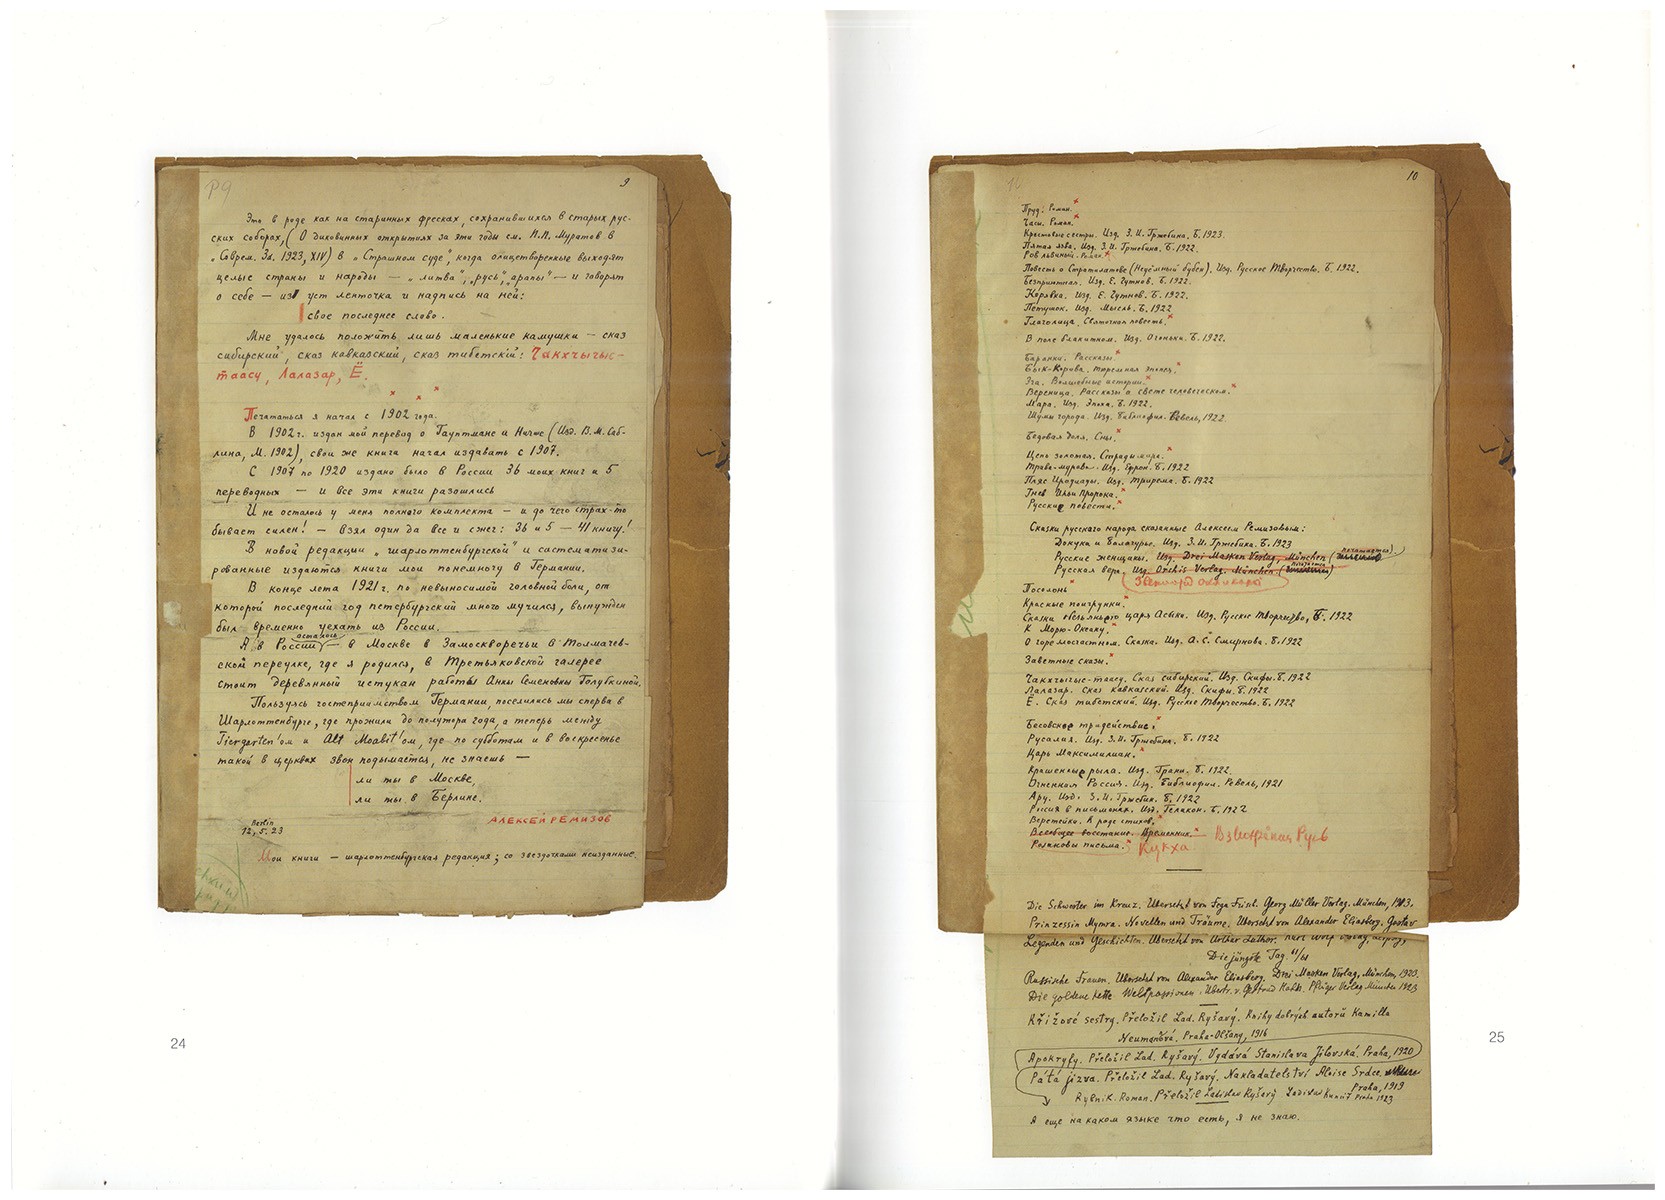 9
Это в роде как на старинных фресках, сохранившихся в старых рус-
ских соборах, (О диковинных открытиях за эти годы см. П.П. Муратов в
„Соврем. Зап. 1923, XIV) в „Страшном суде", когда олицетворенные выходят
целые страны и народы — „литва", „русь", „арапы" — и говорят
о себе — из уст ленточка и надпись на ней:
свое последнее слово.
Мне удалось положить лишь маленькие камушки — сказ
сибирский, сказ кавказский, сказ тибетский: Чакхчыгыс-
таасу, Лалазар, Ё.
× × ×
Печататься я начал с 1902 года.
В 1902 г. издан мой перевод о Гауптмане и Ничше (Изд. В.М. Саб-
лина, М. 1902), свои же книги начал издавать с 1907.
С 1907 по 1920 издано было в России 36 моих книг и 5
переводных — и все эти книги разошлись
И не осталось у меня полного комплекта — и до чего страх-то
бывает силен! — взял один да все и сжег: 36 и 5 — 41 книгу!
В новой редакции „шарлоттенбургской" и систематизи-
рованные издаются книги мои понемногу в Германии.
В конце лета 1921 г. по невыносимой головной боли, от
которой последний год петербургский много мучился, вынужден
был временно уехать из России.
осталось
А в России — в Москве в Замоскворечьи в Толмачев-
ском переулке, где я родился, в Третьяковской галерее
стоит деревянный истукан работы Анны Семеновны Голубкиной.
Пользуясь гостеприимством Германии, поселились мы сперва в
Шарлоттенбурге, где прожили до полутора года, а теперь между
Tiergarten'ом и Alt Moabit'ом, где по субботам и в воскресенье
такой в церквах звон подымается, не знаешь —
ли ты в Москве,
ли ты в Берлине.
АЛЕКСЕЙ РЕМИЗОВ
Berlin
12, 5. 23
Мои книги — шарлоттенбургская редакция; со звездочками неизданные.
24
10
Пруд. Роман.×
Часы. Роман.×
Крестовые сестры. Изд. З.И. Гржебина. Б. 1923.
Пятая язва. Изд. З.И. Гржебина. Б. 1922.
Ров львиный. Роман.×
Повесть о Стратилатове (Неуёмный бубен). Изд. Русское Творчество. Б. 1922.
Безприютная. Изд. Е. Гутнов. Б. 1922.
Корявка. Изд. Е. Гутнов. Б. 1922.
Петушок. Изд. Мысль. Б. 1922
Глаголица. Святочная повесть.×
В поле блакитном. Изд. Огоньки. Б. 1922.
Баранки. Рассказы.×
Бык-Корова. Тюремная эпопея.×
Эга. Волшебные истории.×
Вереница. Рассказы о свете человеческом.×
Мара. Изд. Эпоха. Б. 1922.
Шумы города. Изд. Библиофил. Ревель, 1922.
Бедовая доля. Сны.×
Цепь золотая. Страды мира.×
Трава-мурава. Изд. Ефрон. Б. 1922
Пляс Иродиады. Изд. Трирема. Б. 1922
Гнев Ильи Пророка.×
Русские повести.×
Сказки русского народа сказанные Алексеем Ремизовым:
Докука и балагурье. Изд. З.И. Гржебина. Б. 1923
Русские женщины. Изд. Drei Masken Verlag, München (печатается)
Русская вера. Изд. Orchis Verlag. München.
Посолонь×
Красные поигрунки.×
Сказки обезьяньего царя Асыки. Изд. Русское Творчество, Б. 1922
К Морю-Океану.×
О горе злосчастном. Сказка. Изд. А.С. Смирнова. Б. 1922
Заветные сказы.×
Чакхчыгыс-таасу. Сказ сибирский. Изд. Скифы. Б. 1922
Лалазар. Сказ кавказский. Изд. Скифы. Б. 1922
Ё. Сказ тибетский. Изд. Русское Творчество. Б. 1922
Бесовское тридействие.×
Русалия. Изд. З.И. Гржебина. Б. 1922
Царь Максимилиан.×
Крашенные рыла. Изд. Грани. Б. 1922.
Огненная Россия. Изд. Библиофил. Ревель, 1921
Ахру. Изд. З.И. Гржебин. Б. 1922
Россия в письменах. Изд. Геликон. Б. 1922
Веретейко. В роде стихов.×
Всеобщее восстание. Временник.× Взвихрённая Русь
Розановы письма.× Кукха
Die Schwester im Kreuz. Übersetzt von Fega Frisch. Georg Müller Verlag. München, 1913.
Prinzessin Mymra. Novellen und Träume. Übersetzt von Alexander Eliasberg. Gustav
Legenden und Geschichten. Übersetzt von Arthur Luther. Kurt Wolf Verlag, Leipzig,
Die jüngste Tag.
Russische Frauen. Übersetzt von Alexander Eliasberg. Drei Masken Verlag, München, 1920.
Die goldene Kette. Weltpassionen. München 1923
Křižové sestry. Přeložil Lad. Ryšavý. Knihy dobrých autorů Kamilla
Neumanová. Praha-Olšany, 1916
Apokryfy. Přeložil Lad. Ryšavý. Vydává Stanislava Jílovská. Praha, 1920
Pátá jizva. Přeložil Lad. Ryšavý. Nakladatelství Aloise Srdce.
Praha, 1919
Rybnik. Roman. Přeložil Ladislav Ryšavý Praha 1923
А еще на каком языке что есть, я не знаю.
25